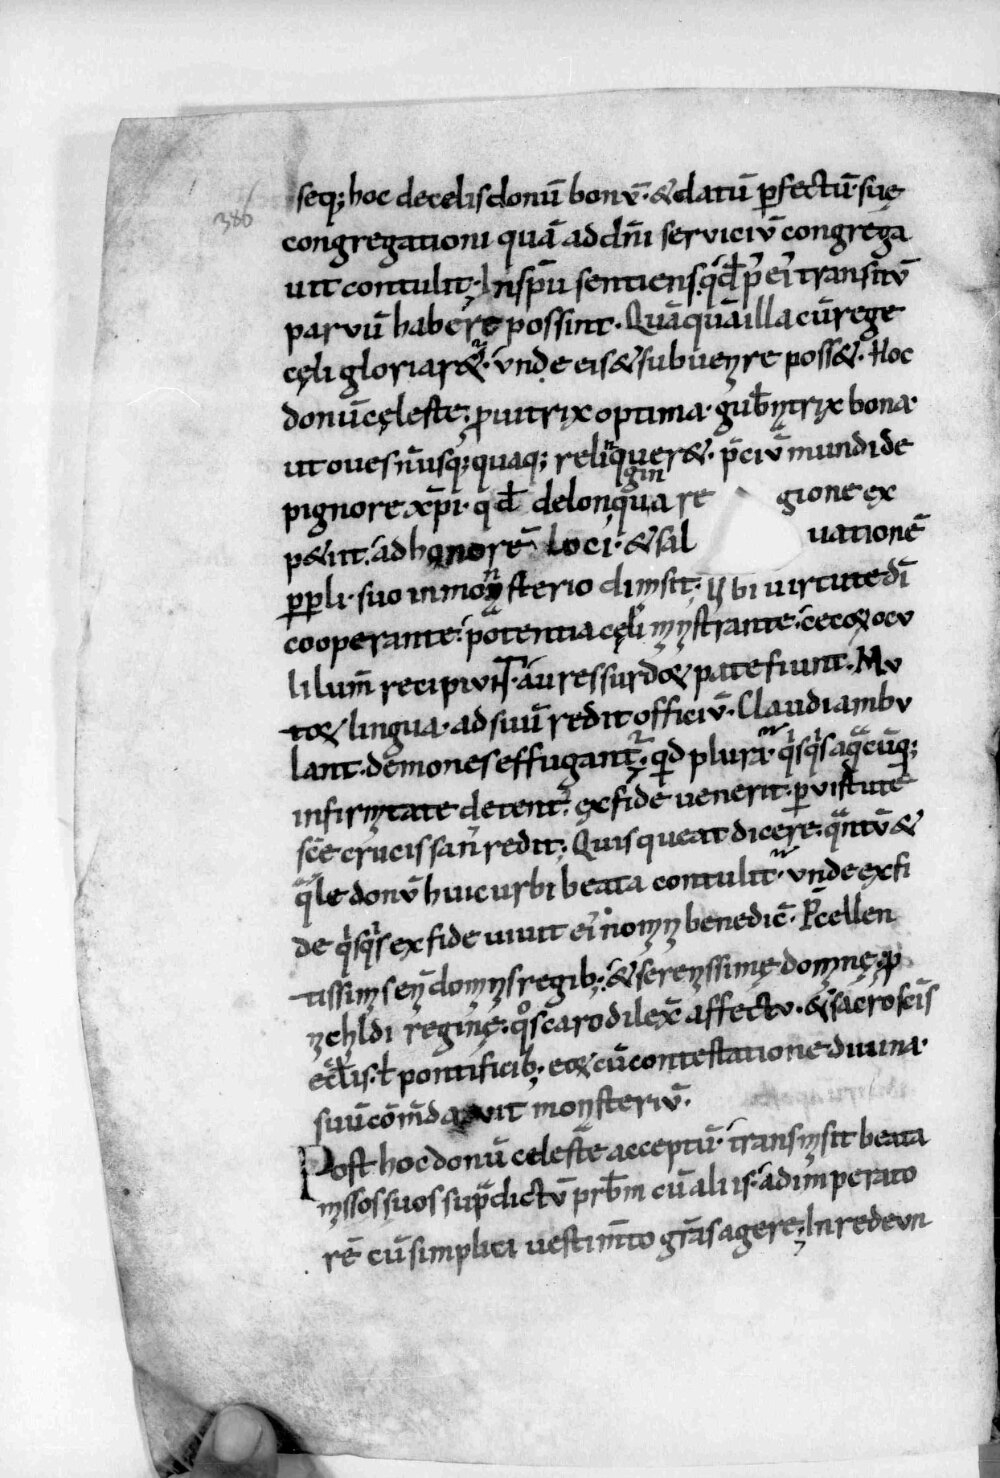 386
seq; hoc decelis donū bonū · & datū ꝑfectū · suę
congregationi quā ad dn̄i serviciū congrega
uit contulit · In sp̄u sentiens · qd̄ p̄ ei transitū
parvū habere possint · Quāquā illa cū rege
cęli gloriar& · unde eis & subuenyre poss& · Hoc
donū cęleste · ꝓvitrix optima · gub̄nytrix bona ·
ut oves n̄ usq; quaq; relinquer& · p̄ciū mundi de
pignore xp̄i · qd̄ de longinqua re gione ex
p&iit · ad honorē loci · & sal uationē
pp̄li · suo in monysterio dimsit · ubi uirtute dī
cooperante · potentia cęli mynystrante · cecoꝝ ocu
li lum̄ recipiunt · aures surdoꝝ patefiunt · Mu
toꝝ lingua · ad suū redit officiū · Claudi ambu
lant · demones effugant · qd plura · qͥsqͥs a qᵃcūq;
infirmytate detent · ex fide uenerit · ꝑ virtute
sc̄e crucis san̄ redit · Quis queat dicere · qᵃntū &
qᵃle donū huic urbi beata contulit · unde ex fi
de qͥsqͥs ex fide uiuit ei nomyn benedic̄ · P̄cellen
tissimys eny domynys regib; · & serenyssimę domynę ꝓ
nychildi reginę · qͦs caro dilex̄ affectu · & sacroscīs
ecl̄is · l̄ pontificib; · eoꝝ cū contestatione divina ·
suū com̄dauit monysteriū ·
Post hoc donū celeste acceptū · transmysit beata
myssos suos sup̄dictū prb̄m cū aliis · ad imperato
rē cū simplici uestim̄to grās agere · In redeun